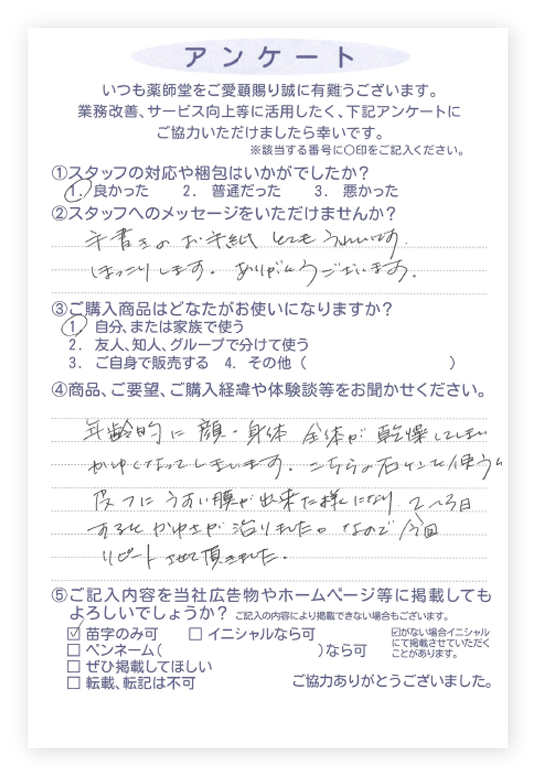 アンケート
いつも薬師堂をご愛顧賜り誠に有難うございます。
業務改善、サービス向上等に活用したく、下記アンケートに
ご協力いただけましたら幸いです。
※該当する番号に〇印をご記入ください。
①スタッフの対応や梱包はいかがでしたか？
1. 良かった 2. 普通だった 3. 悪かった
②スタッフへのメッセージをいただけませんか？
手書きのお手紙 とてもうれしいです.
ほっこりします. ありがとうございます.
③ご購入商品はどなたがお使いになりますか？
1 自分、または家族で使う
2. 友人、知人、グループで分けて使う
3. ご自身で販売する 4. その他（ ）
④商品、ご要望、ご購入経緯や体験談等をお聞かせください。
年齢的に 顔・身体 全体が 乾燥してしまい
かゆくなってしまいます. こちらの石ケンを使うと
皮フに うすい膜が出来た様になり. 2〜3日
すると かゆさが 治りました。なので 今回
リピート させて頂きました.
⑤ご記入内容を当社広告物やホームページ等に掲載しても
よろしいでしょうか？ ご記入の内容により掲載できない場合もございます。
☑ 苗字のみ可 □ イニシャルなら可
□ ペンネーム( )なら可
□ ぜひ掲載してほしい
□ 転載、転記は不可
☑がない場合イニシャル
にて掲載させていただく
ことがあります。
ご協力ありがとうございました。